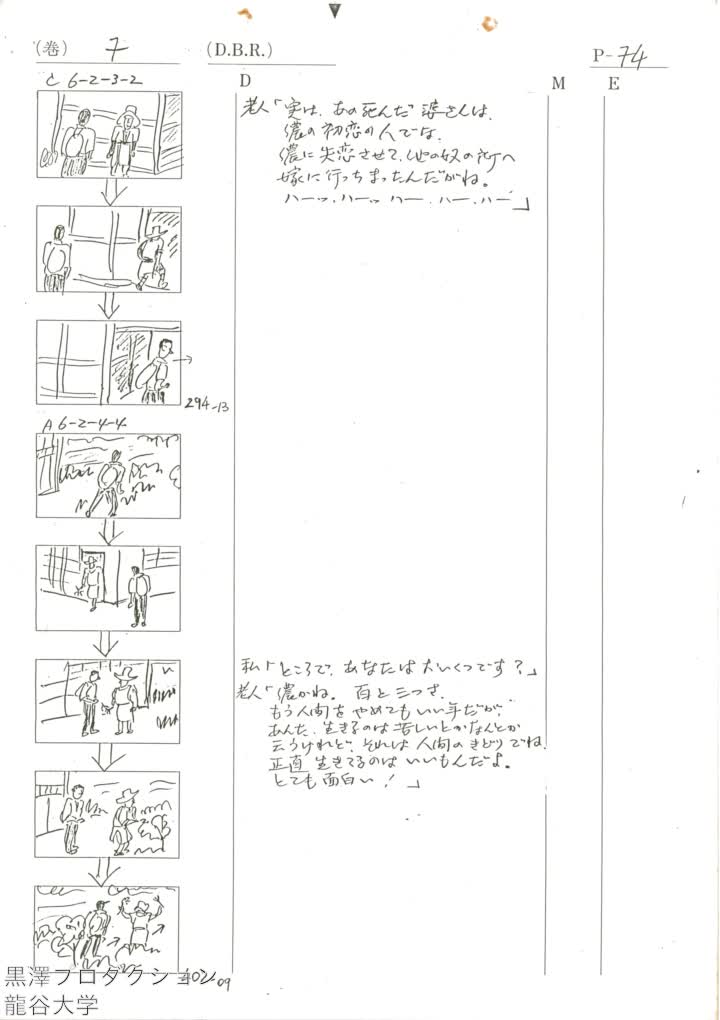 (巻) 7 (D.B.R.) P-74
C 6-2-3-2
D M E
老人「実は、あの死んだ婆さんは、
儂の初恋の人でな、
儂に失恋させて、他の奴の所へ
嫁に行っちまったんだがね。
ハーッ、ハーッ ハー、ハー、ハー」
294-13
A 6-2-4-4
私「ところで、あなたはおいくつです?」
老人「儂かね。百と三つさ、
もう人間をやめてもいい年だが、
あんた、生きるのは苦しいとかなんとか
云うけれど、それは人間のきどりでね、
正直 生きてるのはいいもんだよ。
とても面白い!」
402-09
黒澤プロダクション
龍谷大学